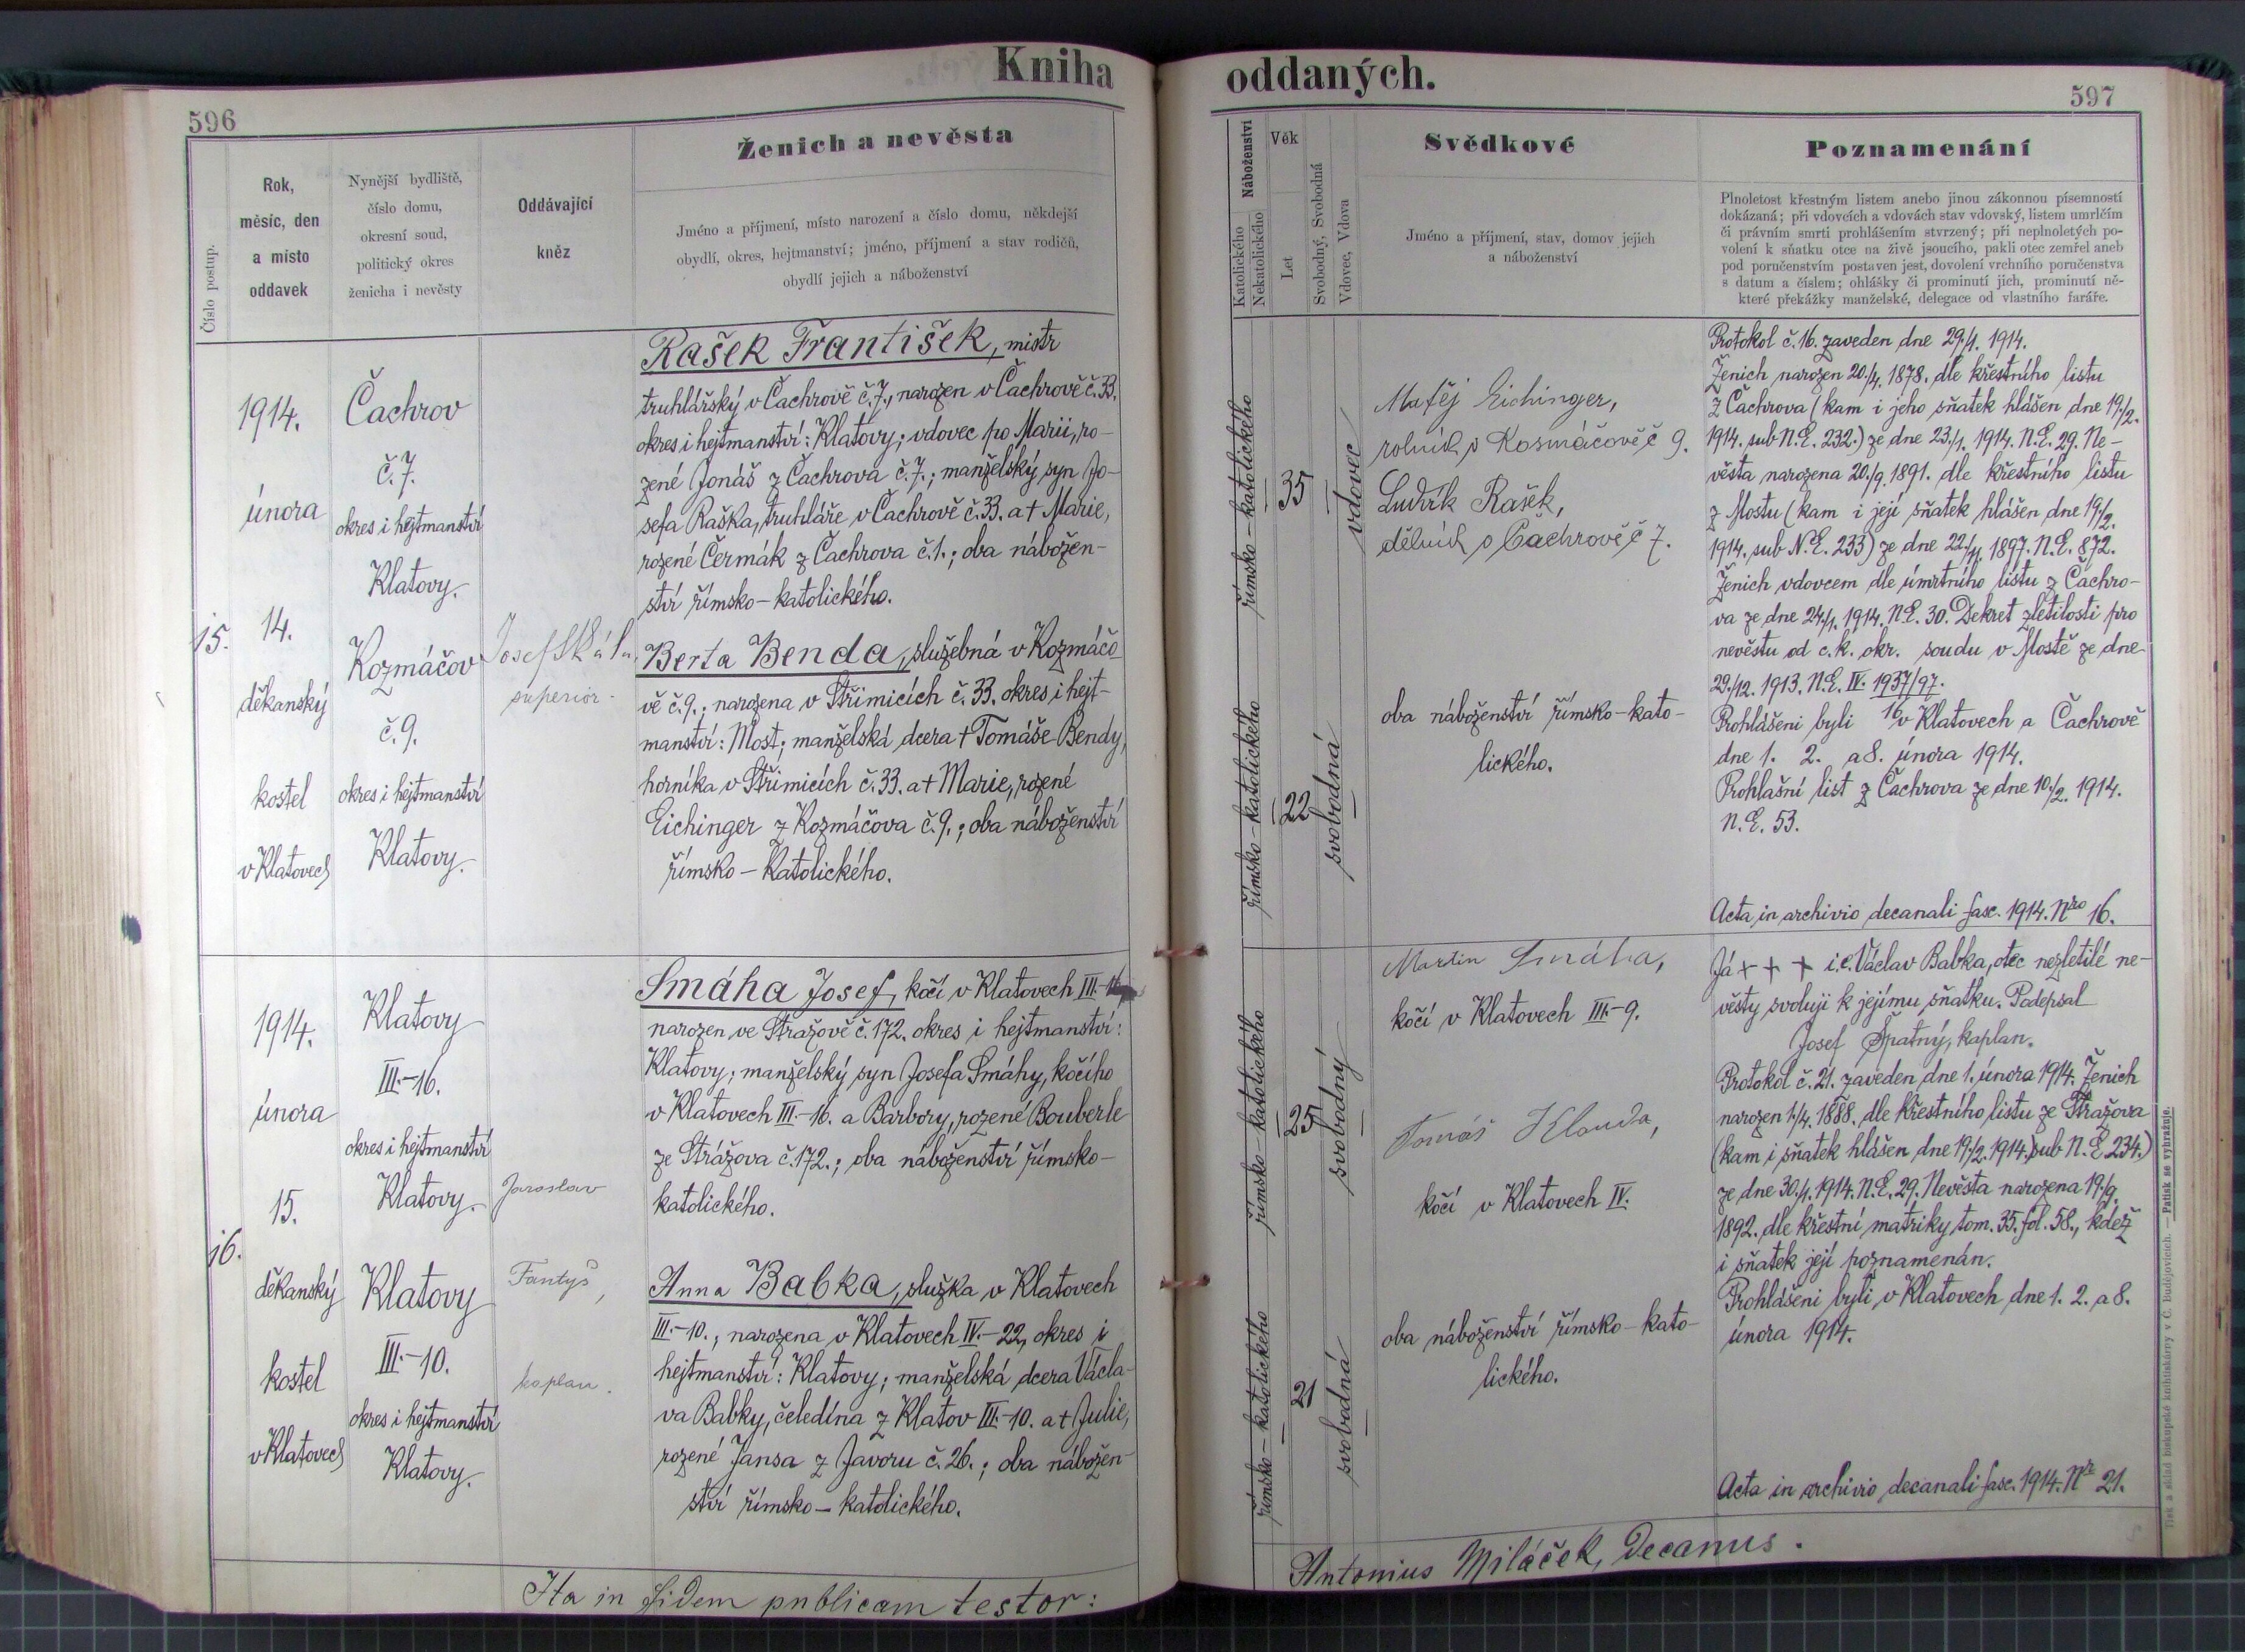 Kniha
596
Číslo postup.
Rok,
měsíc, den
a místo
oddavek
Nynější bydliště,
číslo domu,
okresní soud,
politický okres
ženicha i nevěsty
Oddávající
kněz
Ženich a nevěsta
Jméno a příjmení, místo narození a číslo domu, někdejší
obydlí, okres, hejtmanství; jméno, příjmení a stav rodičů,
obydlí jejich a náboženství
15.
1914.
února
14.
děkanský
kostel
v Klatovech
Čachrov
č. 7.
okres i hejtmanství
Klatovy.
Kozmáčov
č. 9.
okres i hejtmanství
Klatovy.
Josef Skála,
superior.
Rašek František, mistr
truhlářský v Čachrově č. 7., narozen v Čachrově č. 33.
okres i hejtmanství: Klatovy; vdovec po Marii, ro-
zené Jonáš z Čachrova č. 7.; manželský syn Jo-
sefa Raška, truhláře v Čachrově č. 33. a † Marie,
rozené Čermák z Čachrova č. 1.; oba nábožen-
ství římsko-katolického.
Berta Benda, služebná v Kozmáčo-
vě č. 9., narozena v Střimicích č. 33. okres i hejt-
manství: Most; manželská dcera † Tomáše Bendy,
horníka v Střimicích č. 33. a † Marie, rozené
Eichinger z Kozmáčova č. 9.; oba náboženství
římsko-katolického.
16.
1914.
února
15.
děkanský
kostel
v Klatovech
Klatovy
III.-16.
okres i hejtmanství
Klatovy.
Klatovy
III.-10.
okres i hejtmanství
Klatovy.
Jaroslav
Fantyš,
kaplan.
Smáha Josef, kočí v Klatovech III.-16
narozen ve Stražově č. 172. okres i hejtmanství:
Klatovy; manželský syn Josefa Smáhy, kočího
v Klatovech III.-16. a Barbory, rozené Bouberle
ze Strážova č. 172.; oba náboženství římsko-
katolického.
Anna Babka, služka v Klatovech
III.-10., narozena v Klatovech IV.-22, okres i
hejtmanství: Klatovy; manželská dcera Václa-
va Babky, čeledína z Klatov III.-10. a † Julie,
rozené Jansa z Javoru č. 26.; oba nábožen-
ství římsko-katolického.
Ita in fidem publicam testor:
oddaných.
597
Náboženství
Katolického
Nekatolického
Věk
Let
Svobodný, Svobodná
Vdovec, Vdova
Svědkové
Jméno a příjmení, stav, domov jejich
a náboženství
Poznamenání
Plnoletost křestným listem anebo jinou zákonnou písemností
dokázaná; při vdovcích a vdovách stav vdovský, listem umrlčím
či právním smrti prohlášením stvrzený; při neplnoletých po-
volení k sňatku otce na živě jsoucího, pakli otec zemřel aneb
pod poručenstvím postaven jest, dovolení vrchního poručenstva
s datum a číslem; ohlášky či prominutí jich, prominutí ně-
které překážky manželské, delegace od vlastního faráře.
římsko-katolického
35
vdovec
římsko-katolického
22
svobodná
Matěj Eichinger,
rolník v Kosmáčově č 9.
Ludvík Rašek,
dělník v Čachrově č 7.
oba náboženství římsko-kato-
lického.
Protokol č. 16. zaveden dne 29./1. 1914.
Ženich narozen 20./4. 1878. dle křestního listu
z Čachrova (kam i jeho sňatek hlášen dne 19./2.
1914. sub N.E. 232.) ze dne 23./1. 1914. N.E. 29. Ne-
věsta narozena 20./9. 1891. dle křestního listu
z Mostu (kam i její sňatek hlášen dne 19./2.
1914. sub N.E. 233) ze dne 22./11. 1897. N.E. 872.
Ženich vdovcem dle úmrtního listu z Čachro-
va ze dne 24./1. 1914. N.E. 30. Dekret zletilosti pro
nevěstu od c. k. okr. soudu v Mostě ze dne
29./12. 1913. N.E. IV. 1937/97.
16
Prohlášeni byli v Klatovech a Čachrově
dne 1. 2. a 8. února 1914.
Prohlašní list z Čachrova ze dne 10./2. 1914.
N.E. 53.
Acta in archivio decanali fasc. 1914. Nro 16.
římsko-katolického
25
svobodný
římsko-katolického
21
svobodná
Martin Smáha,
kočí v Klatovech III.-9.
Tomáš Klouda,
kočí v Klatovech IV.
oba náboženství římsko-kato-
lického.
Já + + + i.e. Václav Babka, otec nezletilé ne-
věsty svoluji k jejímu sňatku. Podepsal
Josef Špatný, kaplan.
Protokol č. 21. zaveden dne 1. února 1914. Ženich
narozen 1./4. 1888. dle křestního listu ze Stražova
(kam i sňatek hlášen dne 19./2. 1914. sub N. E 234.)
ze dne 30./1. 1914. N.E. 29. Nevěsta narozena 19./9.
1892. dle křestní matriky tom. 35. fol. 58., kdež
i sňatek její poznamenán.
Prohlášeni byli v Klatovech dne 1. 2. a 8.
února 1914.
Acta in archivio decanali fasc. 1914. Nr 21.
Antonius Miláček, Decanus.
Tisk a sklad biskupské knihtiskárny v Č. Budějovicích. — Patisk se vyhražuje.